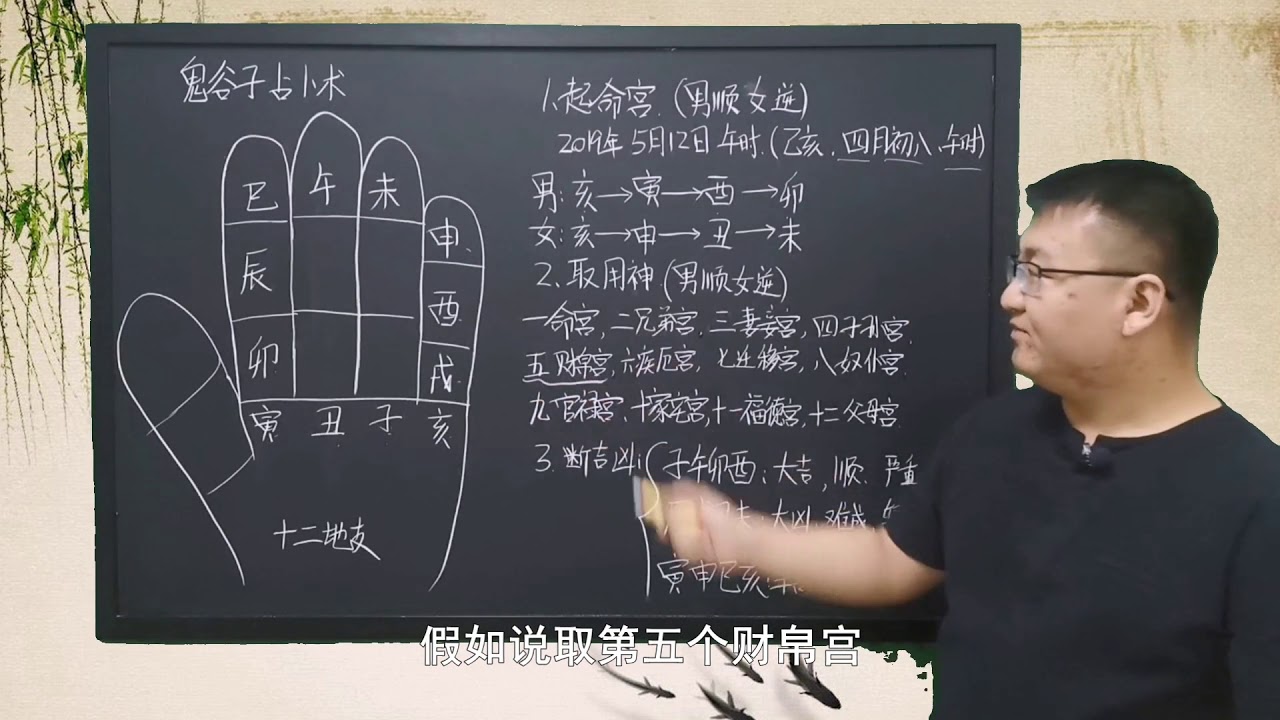 鬼谷子占卜术
巳 午 未
申
辰
酉
卯
戌
寅 丑 子 亥
十二地支
1.起命宫.(男顺女逆)
2019年5月12日午时.(乙亥.四月初八.午时)
男:亥→寅→酉→卯
女:亥→申→丑→未
2.取用神(男顺女逆)
一命宫,二兄弟宫,三妻妾宫,四子孙宫.
五财帛宫,六疾厄宫,七迁移宫,八奴仆宫.
九官禄宫、十家宅宫,十一福德宫,十二父母宫.
3.断吉凶:
子午卯酉:大吉,顺.严重
大凶.难成
寅申巳亥:
假如说取第五个财帛宫